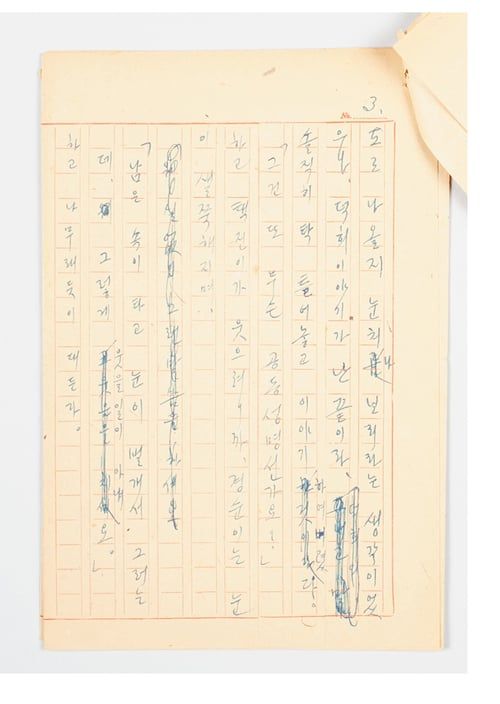 No. 3.
로 나올지 눈치나 보리라는 생각이었
덕희 이야기가 난 끝이라,
솔직히 탁 틀어놓고 이야기 하여 버렸다。
「그건 또 무슨 공동성명인가요!」
하고 택진이가 웃으려니까, 경순이는 눈
이 샐쭉해지며,
「남은 속이 타고 눈이 벌개서 그러는
데, 그렇게 웃을 일이 요。」
하고 나무래듯이 대든다。